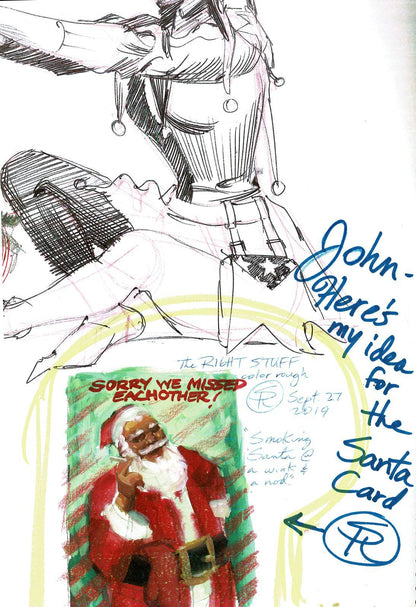 John-
Here's
my idea
for
the
Santa
Card
The RIGHT STUFF
color rough
Sept 27
2019
SORRY WE MISSED
EACHOTHER!
"Smoking
Santa @
a wink &
a nod"